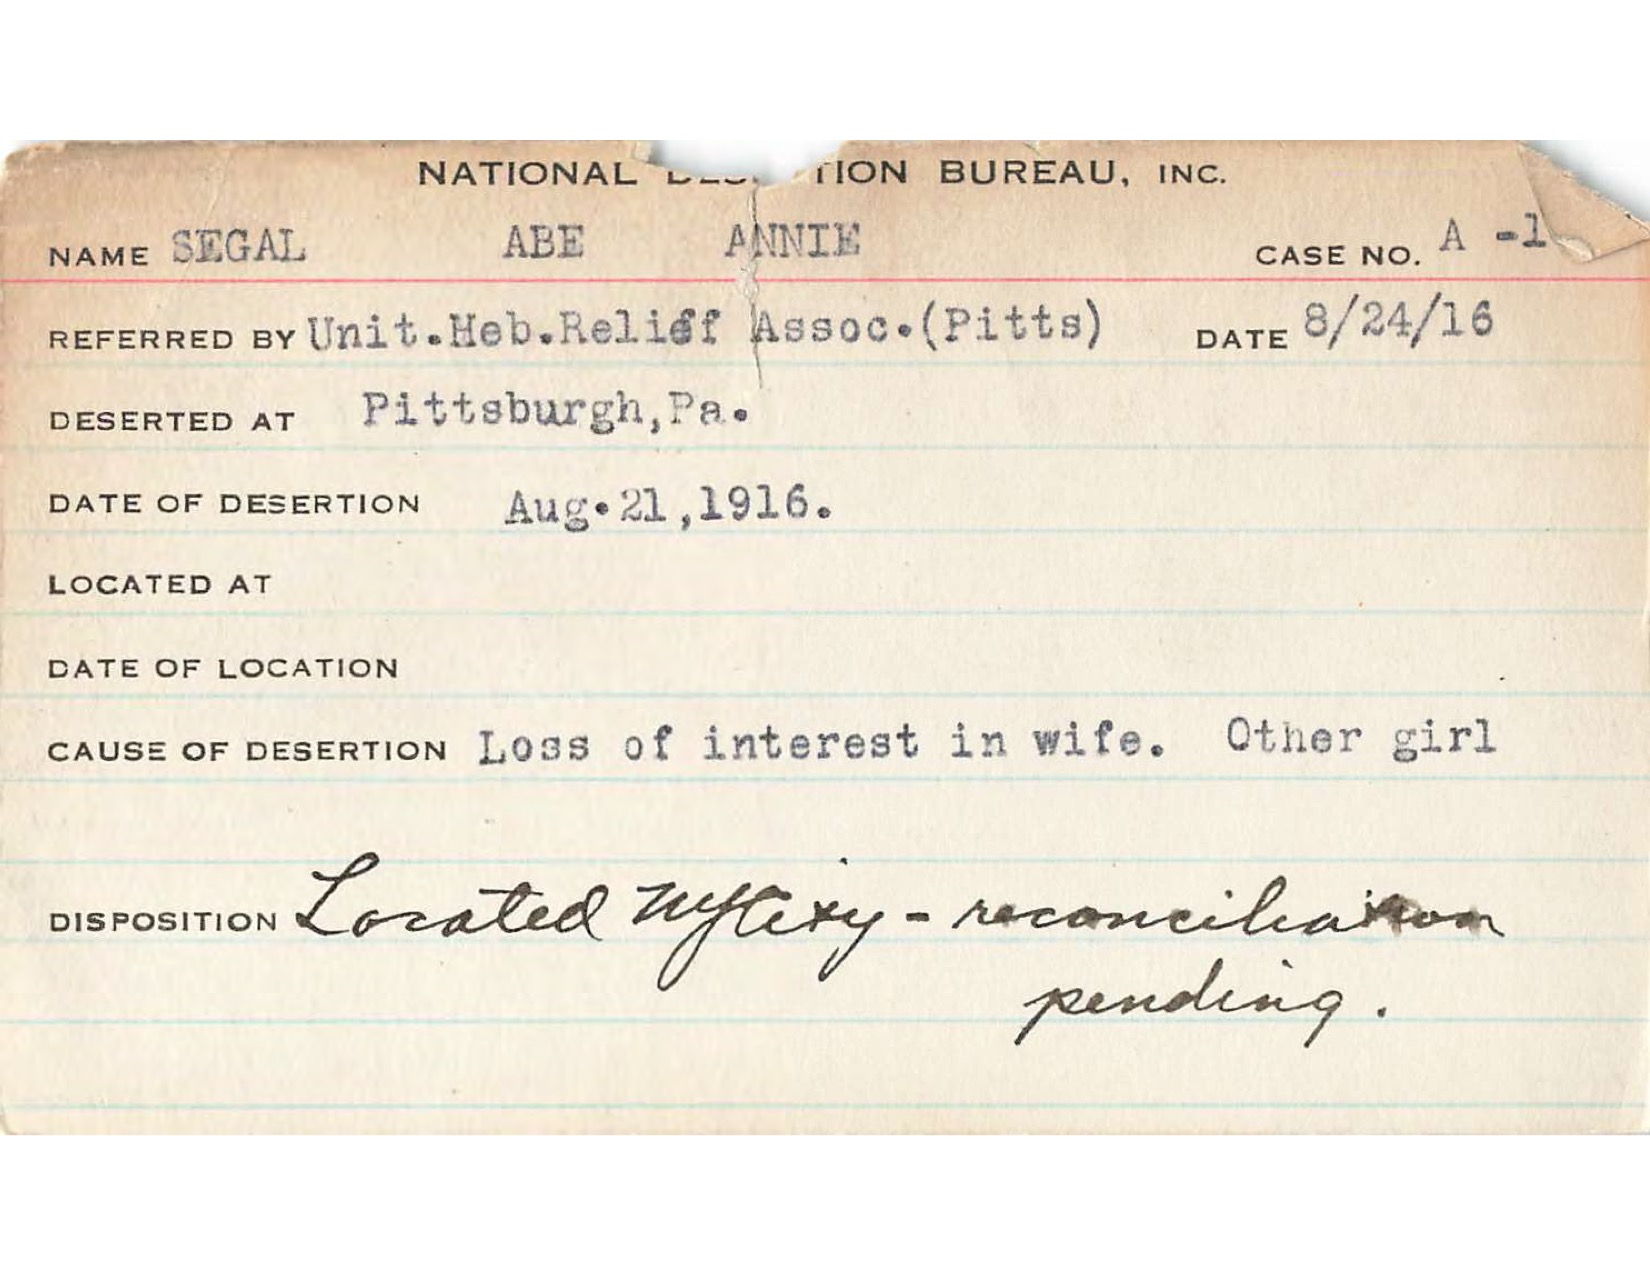 NATIONAL TION BUREAU, INC.
NAME SEGAL ABE ANNIE CASE NO. A -1
REFERRED BY Unit.Heb.Relief Assoc.(Pitts) DATE 8/24/16
DESERTED AT Pittsburgh,Pa.
DATE OF DESERTION Aug.21,1916.
LOCATED AT
DATE OF LOCATION
CAUSE OF DESERTION Loss of interest in wife. Other girl
DISPOSITION Located NYCity - reconciliation
pending.